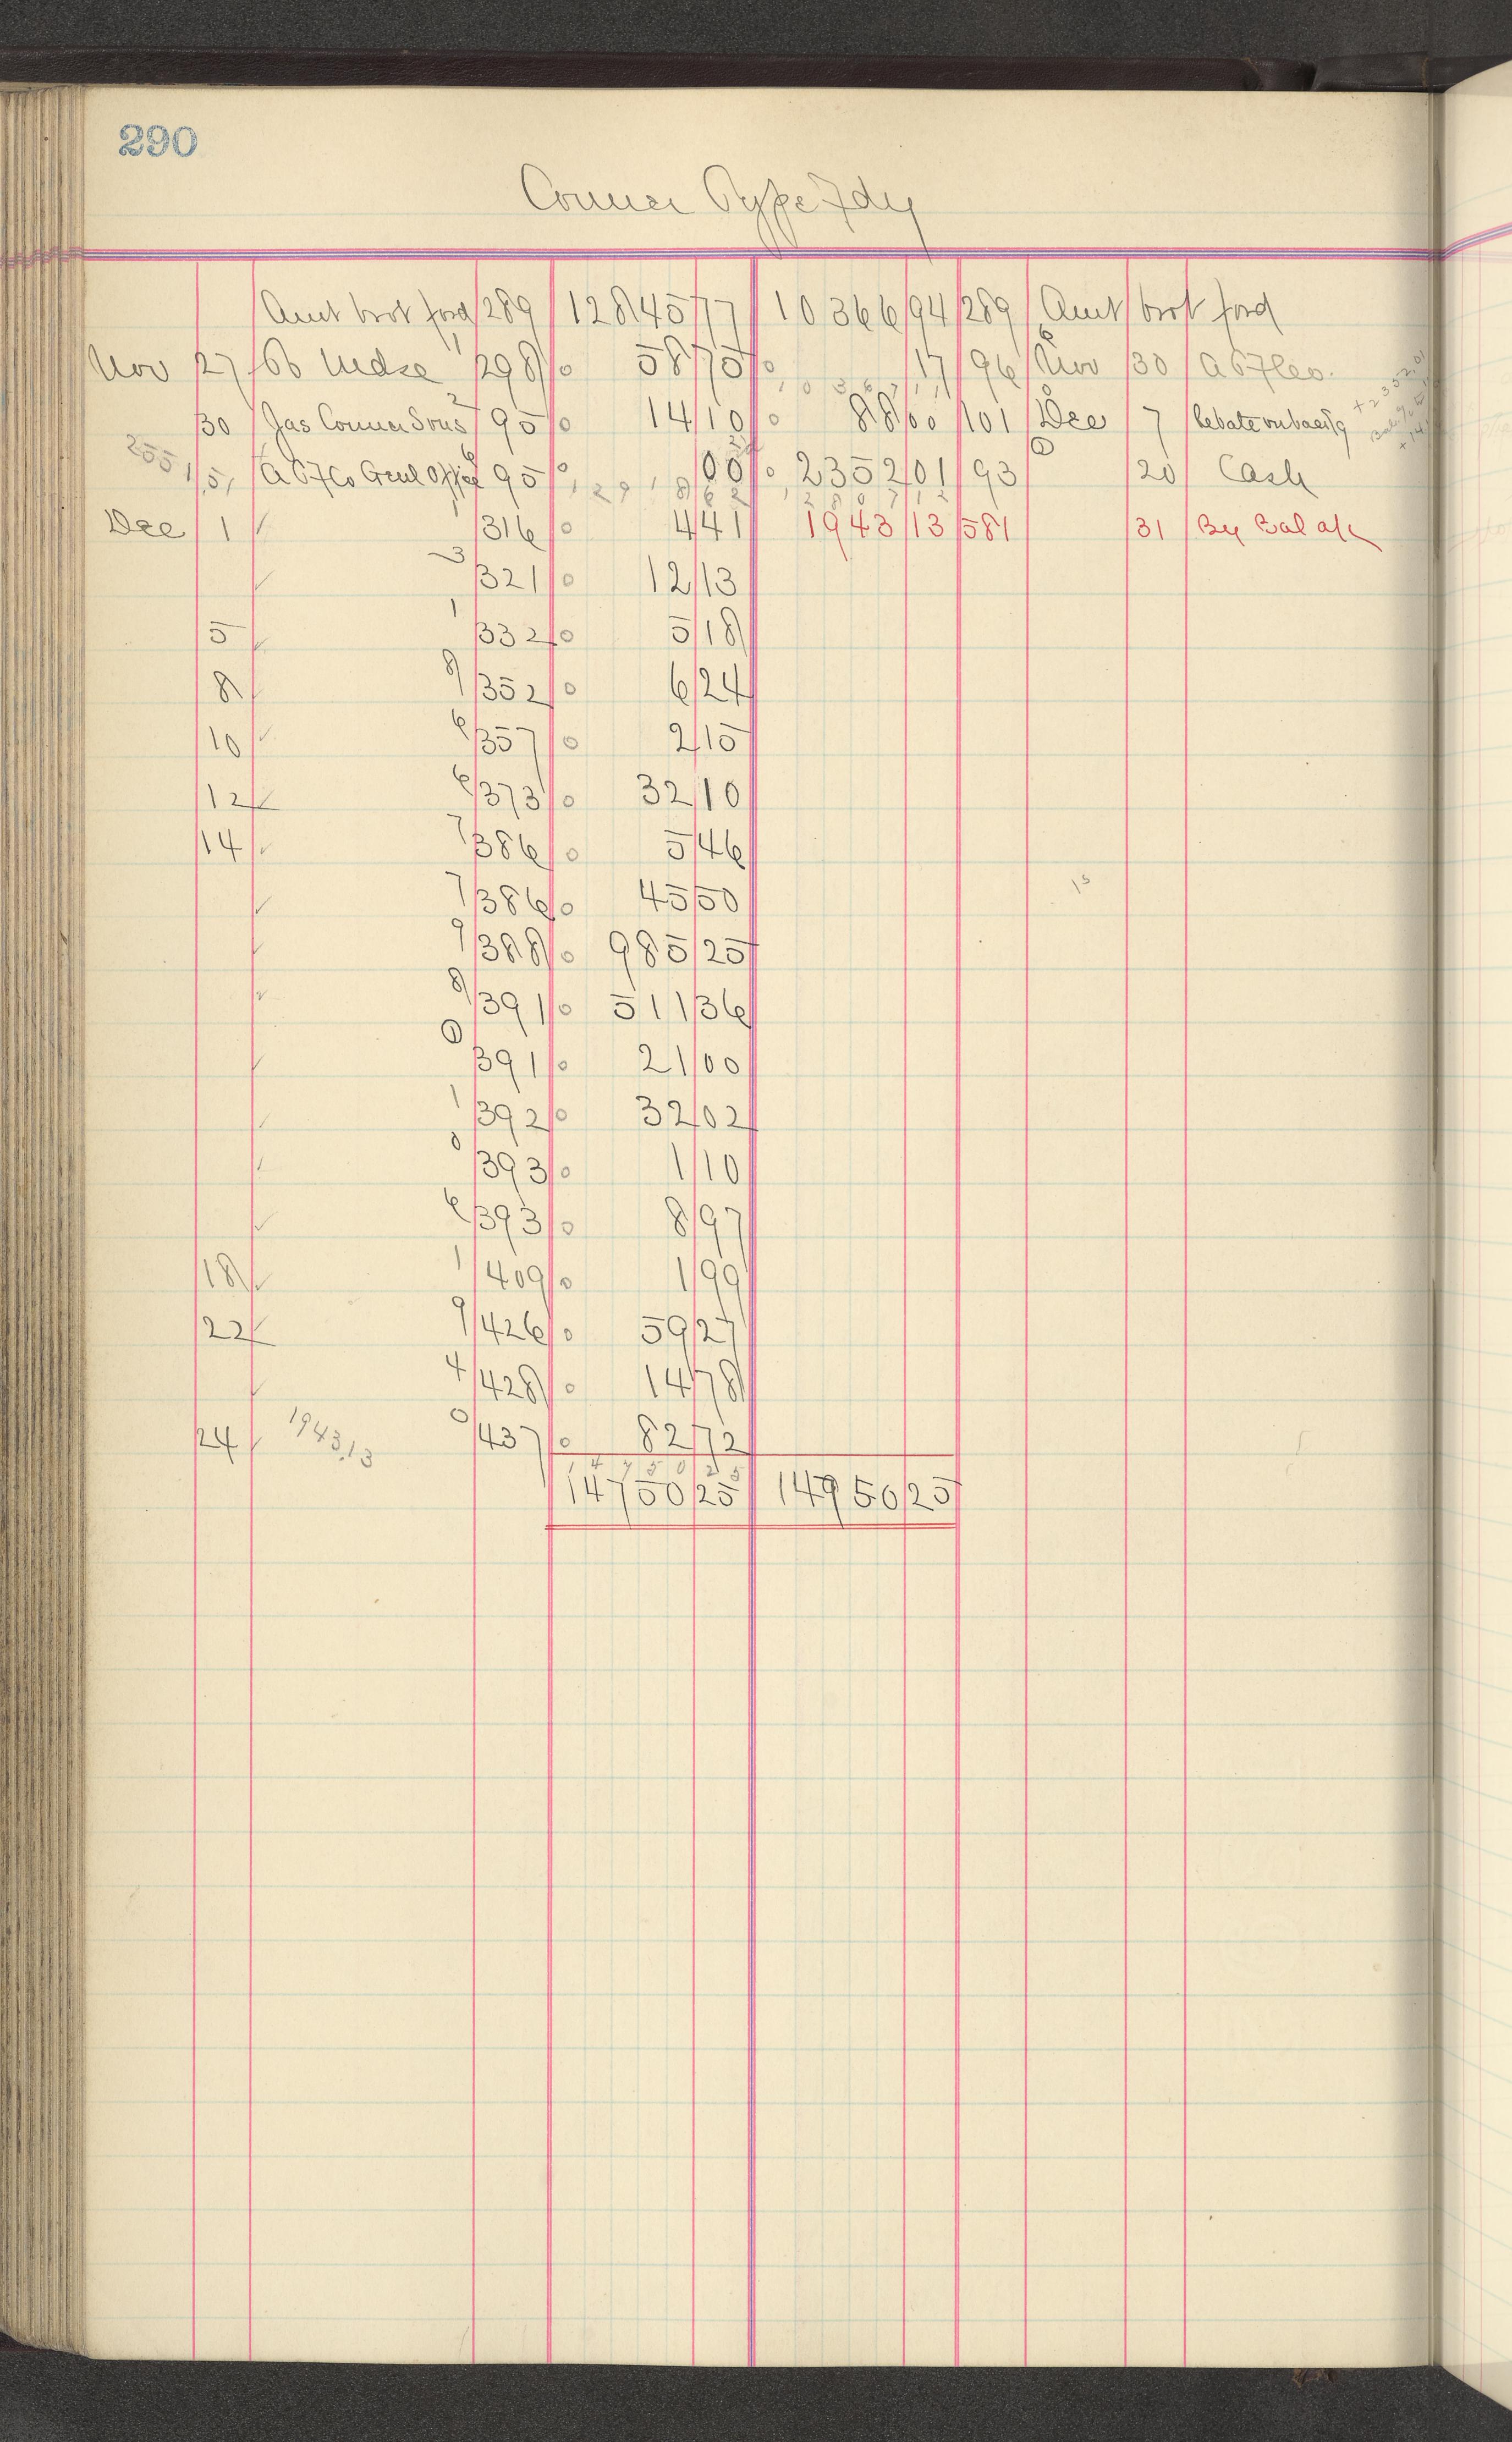 290
Conner Type Fdy
Amt brot ford 289 12845 77 10366 94 289 Amt brot ford
Nov 27 To Mdse 1 298 0 58 75 0 17 96 6 Nov 30 ATFCo.
30 Jas Conner Sons 2 95 0 14 10 0 88 00 101 0 Dec 7 Rebate on
2551.51 ATFCo Genl Office 6 95 0 00 0 2352 01 93 0 20 Cash
12918 62
Dec 1 ✓ 1 316 0 4 41 1943 13 581 31 By Bal a/c
✓ 3 321 0 12 13
5 ✓ 1 332 0 5 18
8 ✓ 8 352 0 6 24
10 ✓ 6 357 0 2 15
12 ✓ 6 373 0 32 10
14 ✓ 7 386 0 5 46
✓ 7 386 0 45 50
✓ 9 388 0 985 25
✓ 8 391 0 511 36
✓ 0 391 0 21 00
✓ 1 392 0 32 02
✓ 0 393 0 1 10
✓ 6 393 0 8 97
18 ✓ 1 409 0 1 99
22 ✓ 9 426 0 59 27
✓ 4 428 0 14 78
24 ✓ 1943.13 0 437 0 82 72
14750 25
14750 25 14750 25